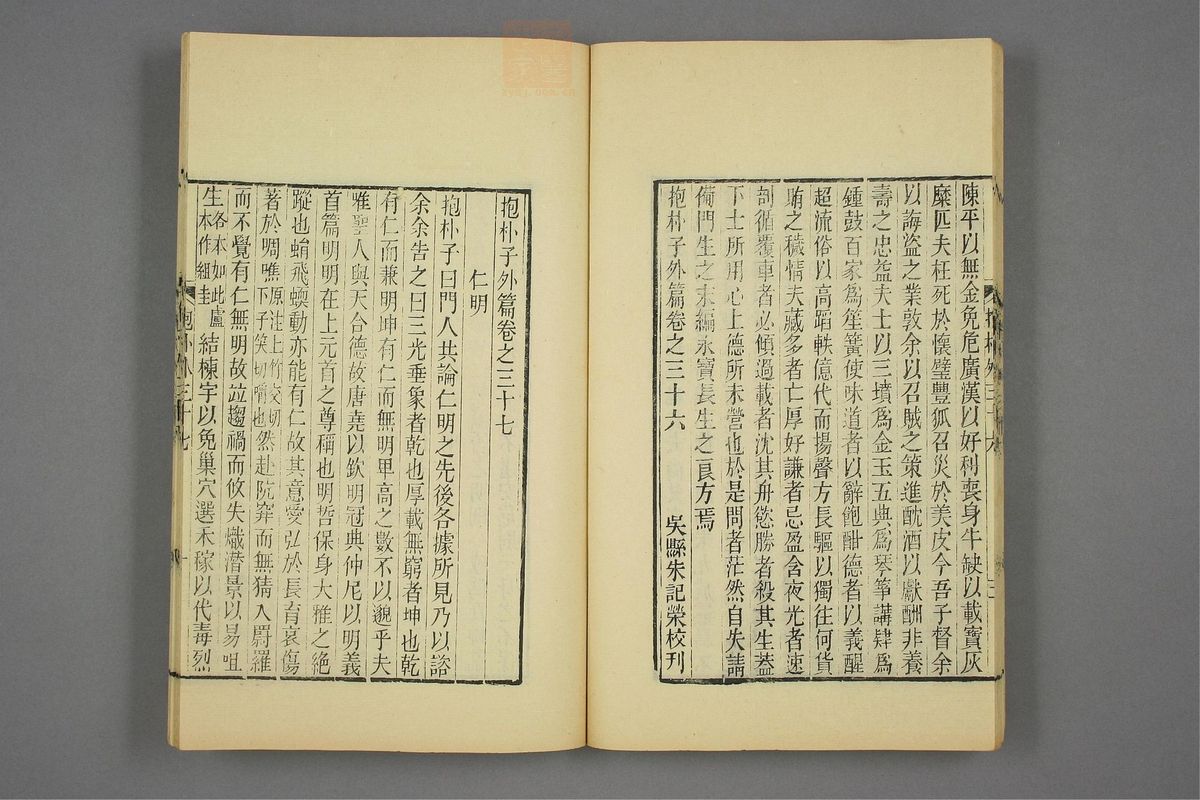 陳平以無金免危廣漢以好利喪身牛缺以載寶灰
糜匹夫枉死於懷璧豐狐召災於美皮今吾子督余
以誨盜之業敦余以召賊之策進酖酒以獻酬非養
壽之忠益夫士以三墳爲金玉五典爲琴筝講肄爲
鍾鼓百家爲笙簧使味道者以辭飽酣德者以義醒
超流俗以高蹈軼億代而揚聲方長驅以獨往何貨
賄之穢情夫藏多者亡厚好謙者忌盈含夜光者速
剖循覆車者必傾過載者沈其舟慾勝者殺其生蓋
下士所用心上德所未營也於是問者茫然自失請
備門生之末編永寶長生之良方焉
抱朴子外篇卷之三十六
吳縣朱記榮校刊
抱朴子外篇卷之三十七
仁明
抱朴子曰門人共論仁明之先後各據所見乃以諮
余余告之曰三光垂象者乾也厚載無窮者坤也乾
有仁而兼明坤有仁而無明卑高之數不以邈乎夫
唯聖人與天合德故唐堯以欽明冠典仲尼以明義
首篇明明在上元首之尊稱也明哲保身大雅之絶
蹤也蛸飛蝡動亦能有仁故其意愛弘於長育哀傷
著於啁噍原注上竹交切下子笑切嚼也然赴阬穽而無猜入罻羅
而不覺有仁無明故竝趨禍而攸失熾潛景以易咀
生各本如此盧本作組圭結棟宇以免巢穴選禾稼以代毒烈